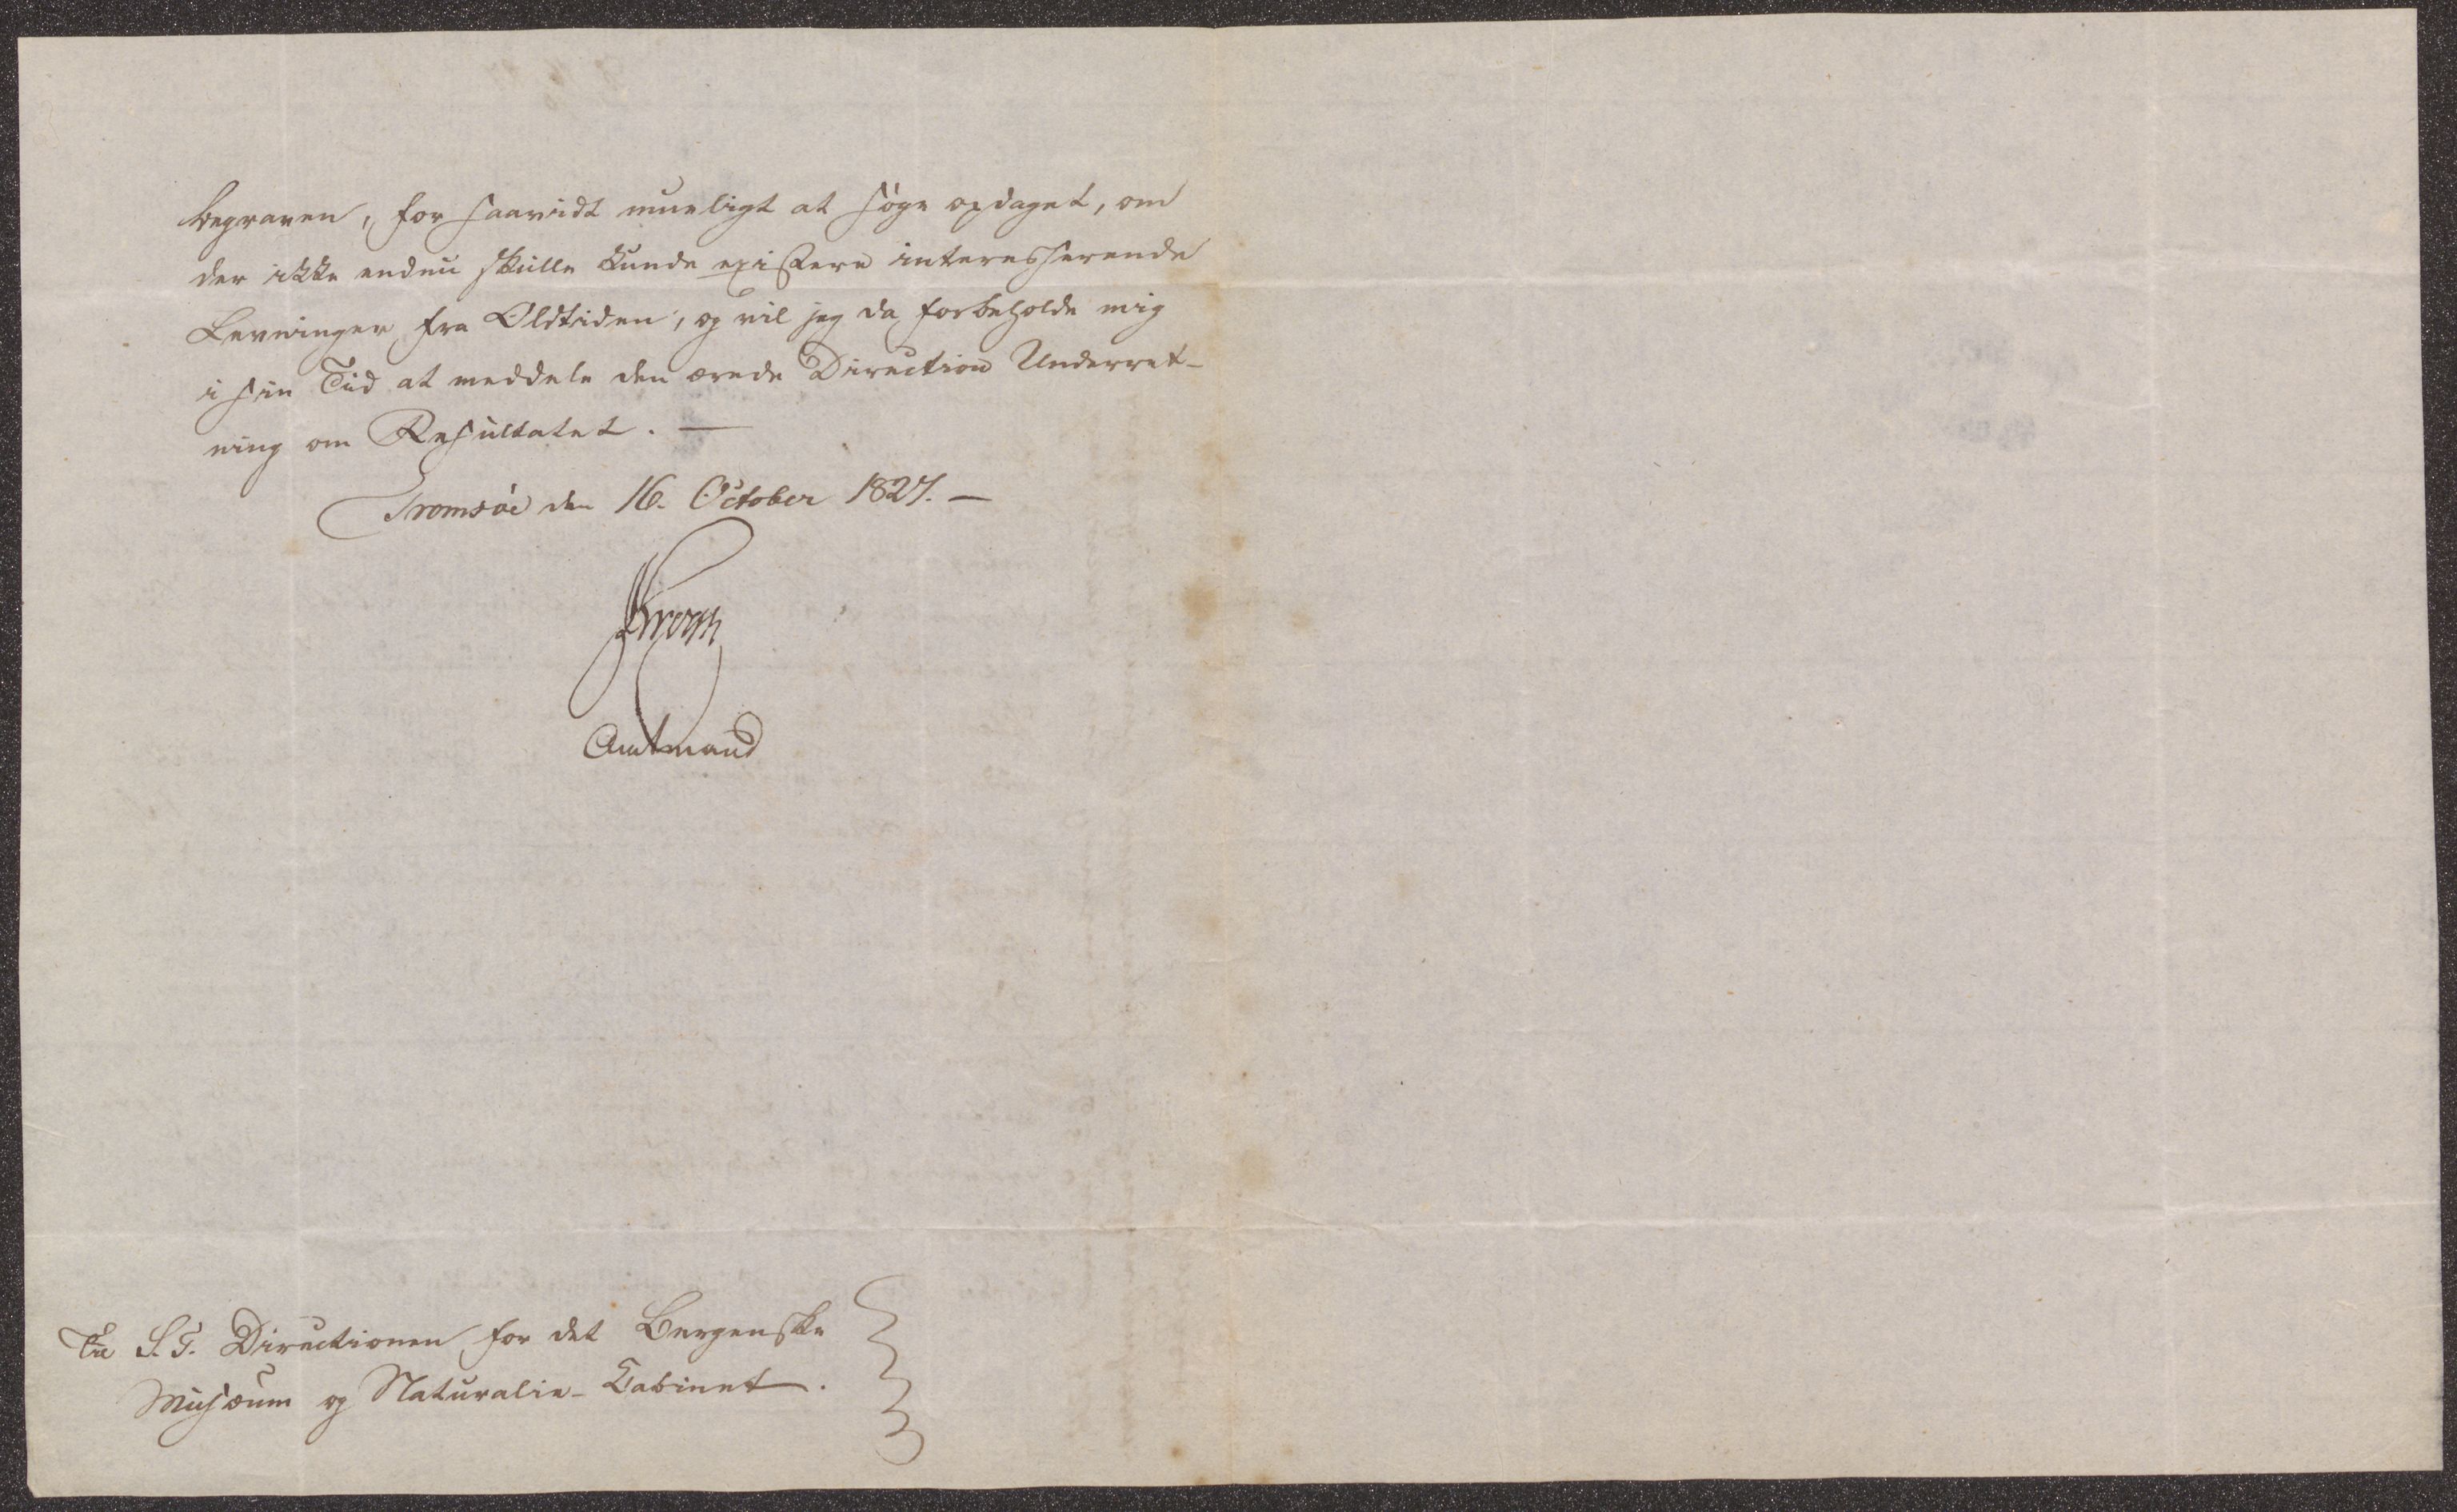 begraven, for saavidt mueligt at søge opdaget, om
der ikke endnu skulle kunde existere interesserende
Levninger fra Oldtiden, og vil jeg da forbeholde mig
i sin Tid at meddele den ærede Direction Underret-
ning om Resultatet. —
Tromsöe den 16. October 1827. —
Krogh
Amtmand
Til S. T. Directionen for det Bergenske
Musæum og Naturalie-Cabinet.